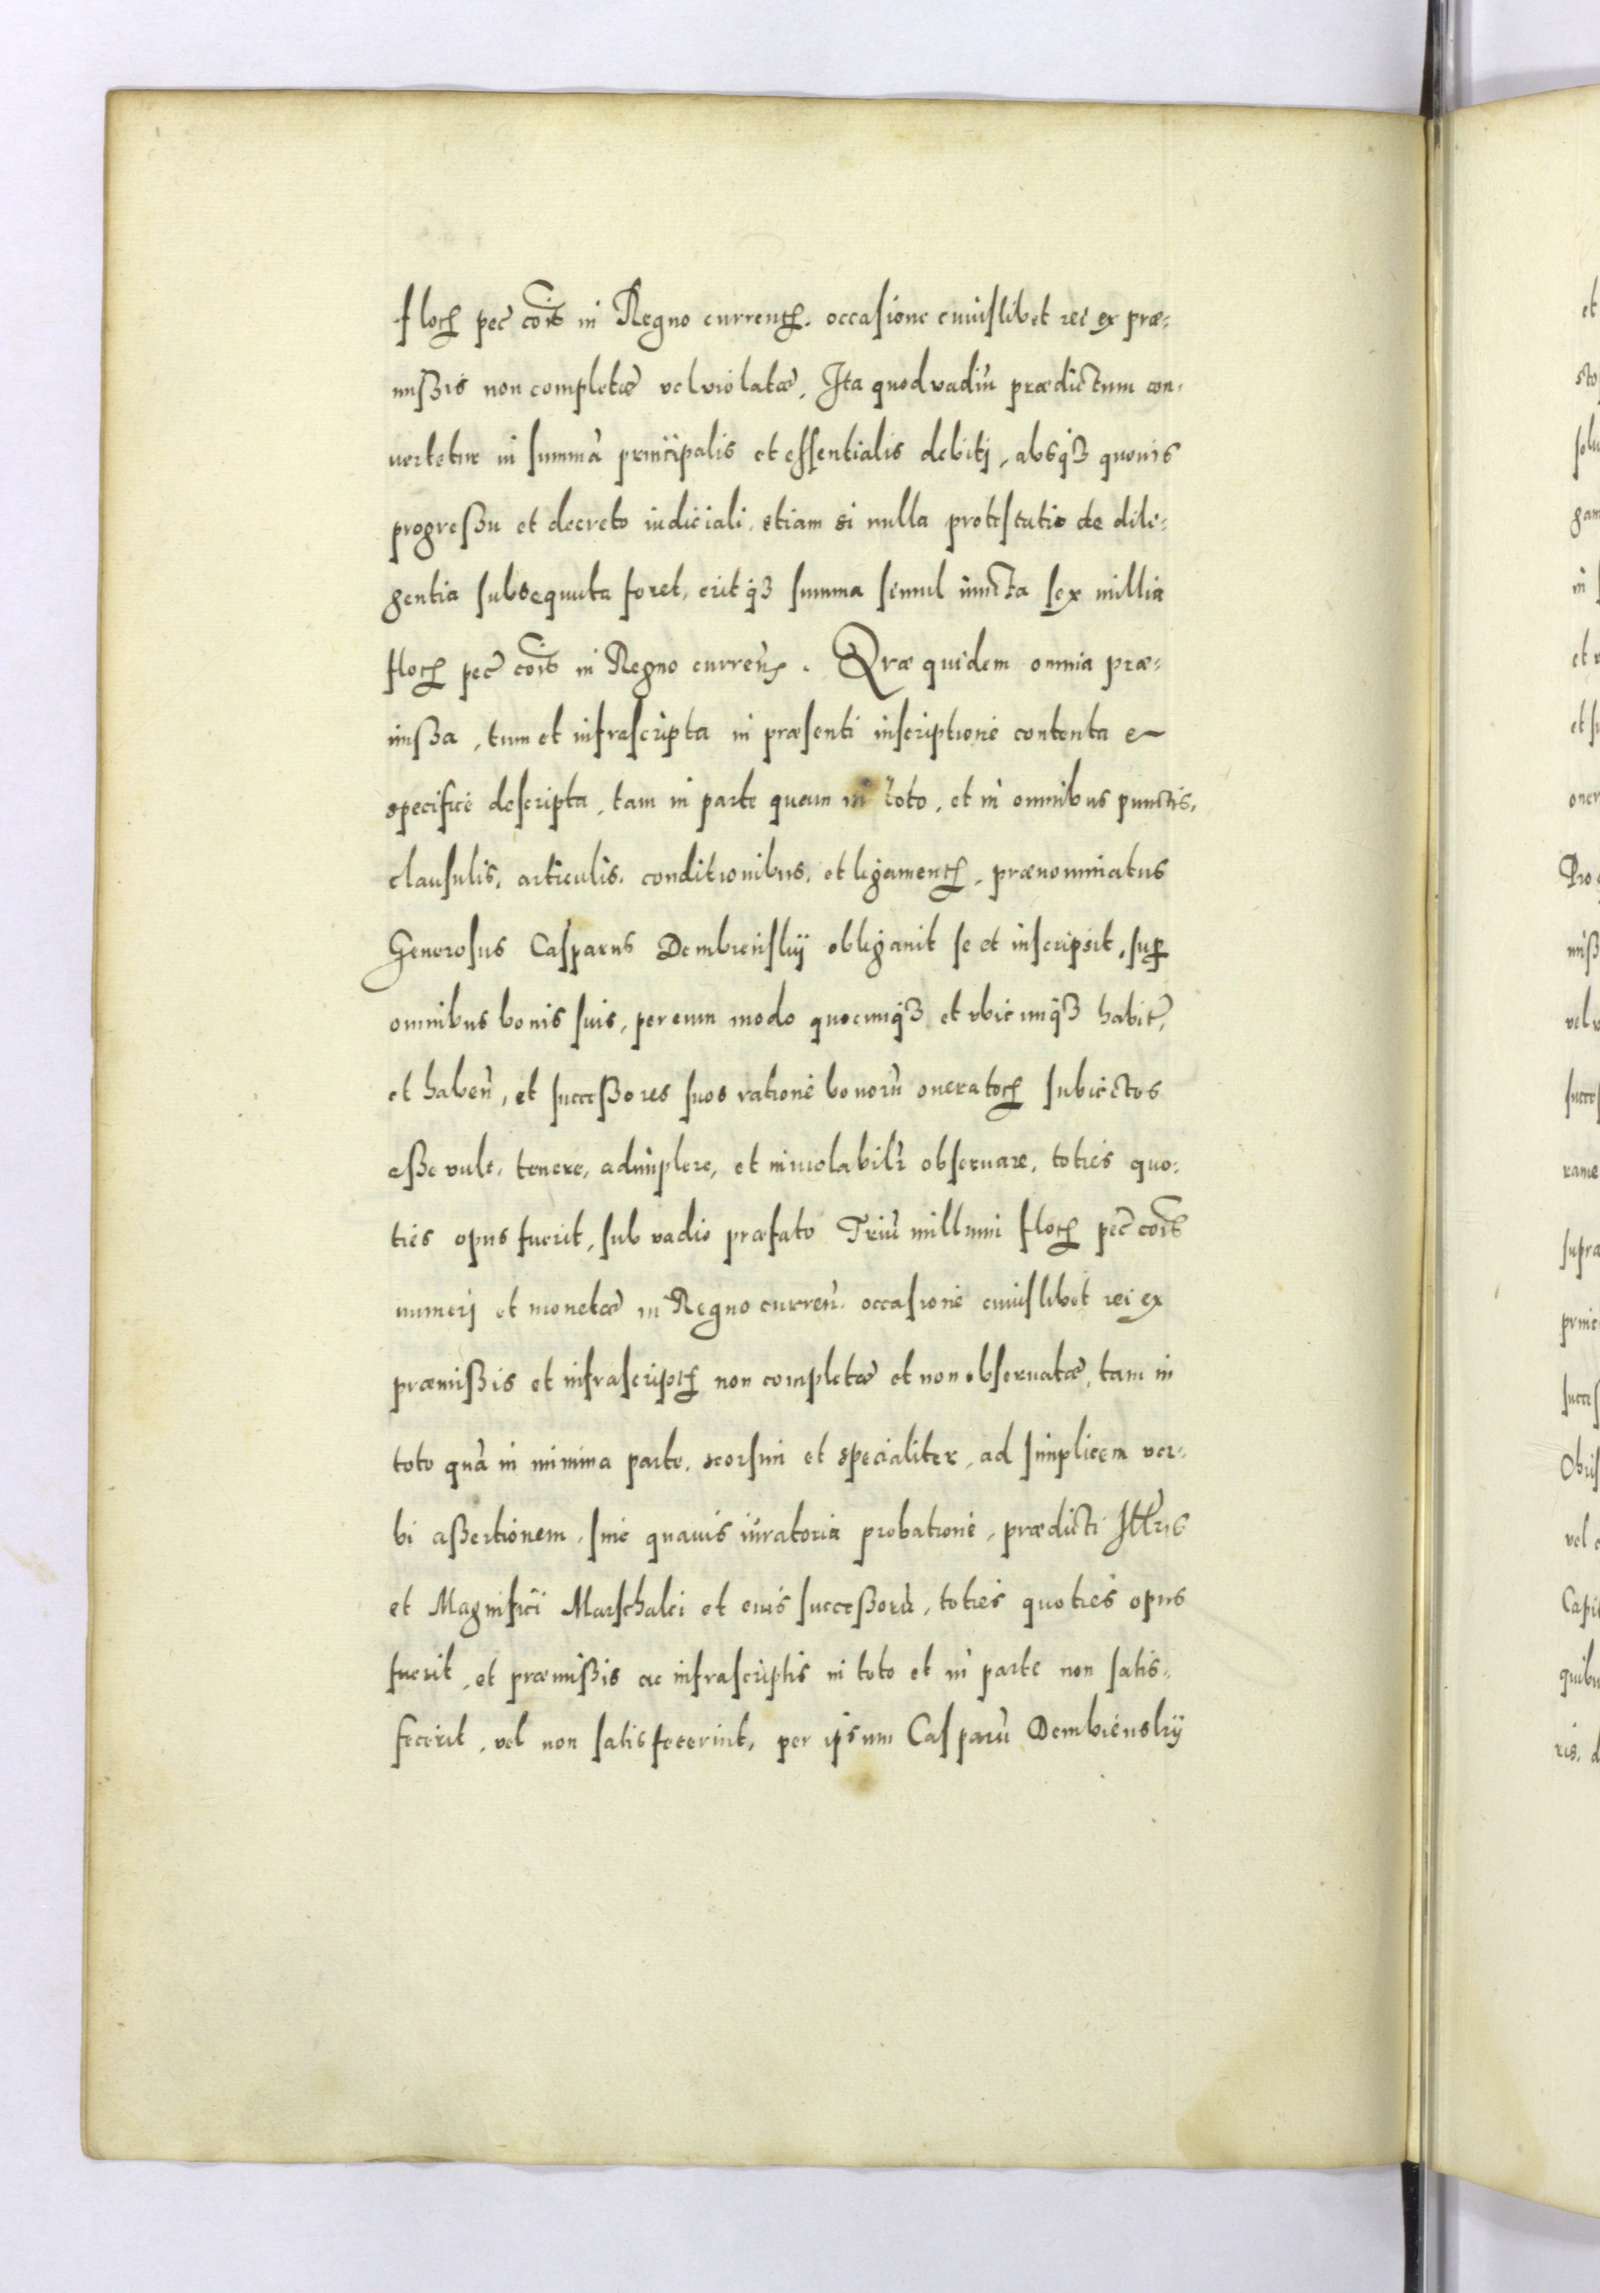 floꝝ pec̃ cõis in Regno currentꝭ. occasione cuiuslibet rei ex præ-
mißis non completæ vel violatæ, Ita quod vadiũ prædictum con-
uertetur in summã principalis et essentialis debitj, absqꝫ quouis
progreßu et decreto iudiciali, etiam si nulla protestatio de dili-
gentia subsequuta foret, eritqꝫ summa simul iuncta sex millia
floꝝ pec̃ cõis in Regno curreñ. Quæ quidem omnia præ-
mißa, tum et infrascripta in præsenti inscriptione contenta et
specifice descripta, tam in parte quam in toto, et in omnibus punctis,
clausulis, articulis, conditionibus, et ligamentꝭ, prænominatus
Generosus Casparus Dembienskÿ obligauit se et inscripsit, suꝑ
omnibus bonis suis, per eum modo quocunqꝫ et vbicunqꝫ habit̃,
et habeñ, et succeßores suos ratione bonorũ oneratoꝝ subiectos
eße vult, tenere, adimplere, et inuiolabilr̃ obseruare, toties quo-
ties opus fuerit, sub vadio præfato Triũ millium floꝝ pec̃ cõis
numerj et monetæ in Regno curreñ. occasione cuiuslibet rei ex
præmißis et infrascriptꝭ non completæ et non obseruatæ, tam in
toto quã in minima parte, seorsim et specialiter, ad simplicem ver-
bi aßertionem, sine quauis iuratoria probatione, prædicti Ill̃ris
et Magnifici Marschalci et eius succeßorũ, toties quoties opus
fuerit, et præmißis ac infrascriptis in toto et in parte non satis-
fecerit, vel non satisfecerint, per ipsum Casparũ Dembienskÿ